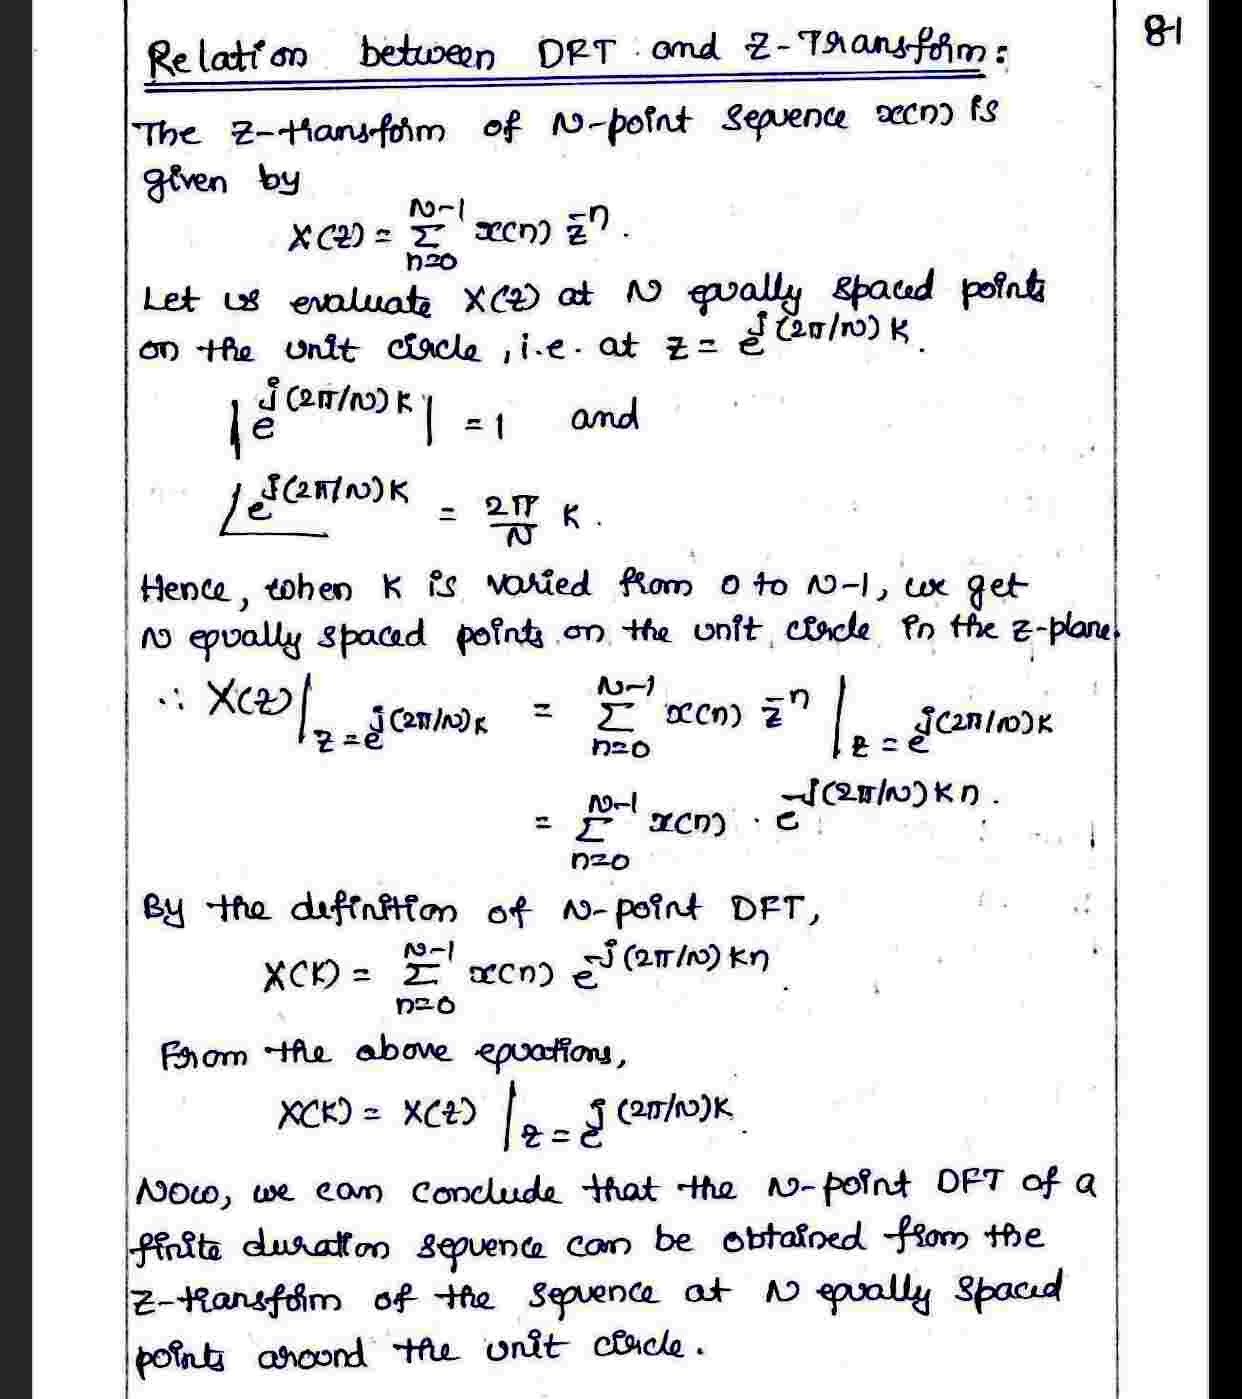 81
Relation between DFT and Z-Transform:
The Z-transform of N-point sequence x(n) is
given by
X(z) = Σ_{n=0}^{N-1} x(n) z^{-n}.
Let us evaluate X(z) at N equally spaced points
on the unit circle, i.e. at z = e^{j(2π/N)K}.
|e^{j(2π/N)K}| = 1 and
∠e^{j(2π/N)K} = 2π/N K.
Hence, when K is varied from 0 to N-1, we get
N equally spaced points on the unit circle in the z-plane.
∴ X(z)|_{z=e^{j(2π/N)K}} = Σ_{n=0}^{N-1} x(n) z^{-n} |_{z=e^{j(2π/N)K}}
= Σ_{n=0}^{N-1} x(n) · e^{-j(2π/N)Kn}.
By the definition of N-point DFT,
X(K) = Σ_{n=0}^{N-1} x(n) e^{-j(2π/N)Kn}.
From the above equations,
X(K) = X(z) |_{z=e^{j(2π/N)K}}.
Now, we can conclude that the N-point DFT of a
finite duration sequence can be obtained from the
Z-transform of the sequence at N equally spaced
points around the unit circle.